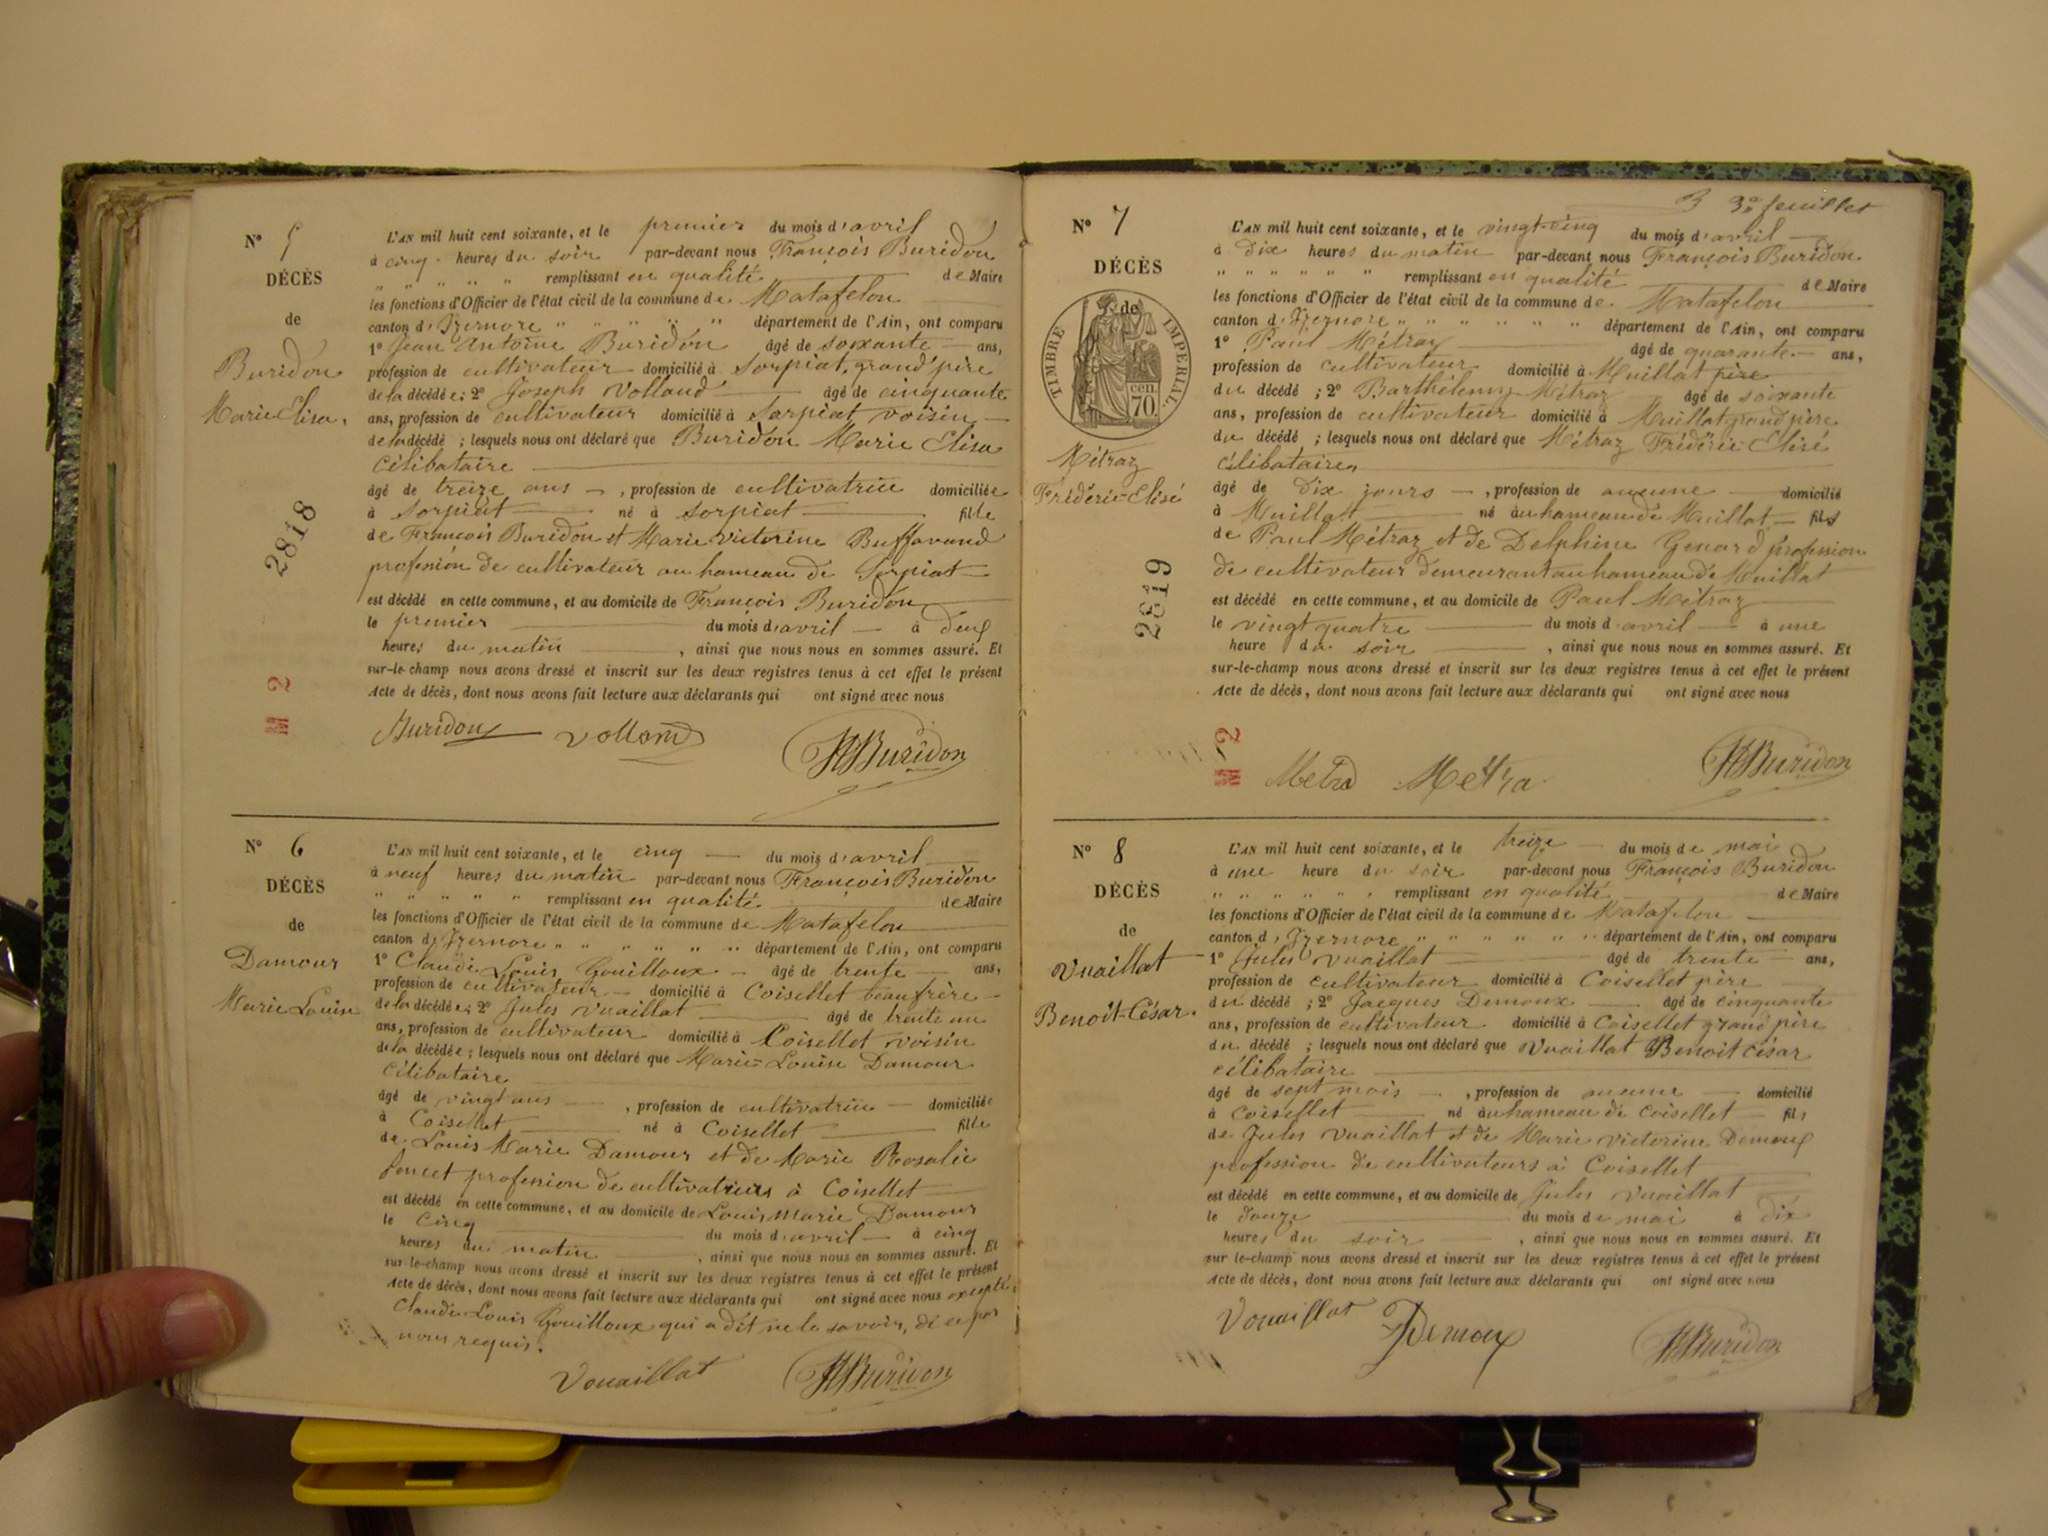 N° 5
DÉCÈS
de
Buridon
Marie Elisa.
2818
M 2
L'AN mil huit cent soixante, et le premier du mois d'avril
à cinq heures du soir par-devant nous François Buridon
" " " " " remplissant en qualité de Maire
les fonctions d'Officier de l'état civil de la commune de Matafelon
canton d'Izernore " " " " " département de l'Ain, ont comparu
1° Jean Antoine Buridon âgé de soixante ans,
profession de cultivateur domicilié à Sorpiat, grand'père
de la décédée; 2° Joseph Volland âgé de cinquante
ans, profession de cultivateur domicilié à Sorpiat voisin
de la décédé ; lesquels nous ont déclaré que Buridon Marie Elisa
célibataire
âgé de treize ans , profession de cultivatrice domiciliée
à Sorpiat né à Sorpiat fille
de François Buridon et Marie Victorine Buffavand
profession de cultivateur au hameau de Sorpiat
est décédé en cette commune, et au domicile de François Buridon
le premier du mois d'avril à deux
heures du matin , ainsi que nous nous en sommes assuré. Et
sur-le-champ nous avons dressé et inscrit sur les deux registres tenus à cet effet le présent
Acte de décès, dont nous avons fait lecture aux déclarants qui ont signé avec nous
Buridon Volland Buridon
N° 6
DÉCÈS
de
Damour
Marie Louise
L'AN mil huit cent soixante, et le cinq du mois d'avril
à neuf heures du matin par-devant nous François Buridon
" " " " " remplissant en qualité de Maire
les fonctions d'Officier de l'état civil de la commune de Matafelon
canton d'Izernore " " " " " " département de l'Ain, ont comparu
1° Claude Louis Gouilloux âgé de trente ans,
profession de cultivateur domicilié à Coisellet beaufrère
de la décédée; 2° Jules Vuaillat âgé de trente un
ans, profession de cultivateur domicilié à Coisellet voisin
de la décédée; lesquels nous ont déclaré que Marie-Louise Damour
célibataire
âgé de vingt ans , profession de cultivatrice domiciliée
à Coisellet né à Coisellet fille
de Louis Marie Damour et de Marie Rosalie
Poncet profession de cultivatrices à Coisellet
est décédé en cette commune, et au domicile de Louis Marie Damour
le cinq du mois d'avril à cinq
heures du matin , ainsi que nous nous en sommes assuré. Et
sur-le-champ nous avons dressé et inscrit sur les deux registres tenus à cet effet le présent
Acte de décès, dont nous avons fait lecture aux déclarants qui ont signé avec nous excepté
Claude Louis Gouilloux qui a dit ne le savoir, de ce par
nous requis.
Vouaillat Buridon
3 3e feuillet
N° 7
DÉCÈS
de
TIMBRE IMPERIAL
70 cen.
Métraz
Frédéric-Elisé
2819
M 2
L'AN mil huit cent soixante, et le vingt-cinq du mois d'avril
à dix heures du matin par-devant nous François Buridon
" " " " " " remplissant en qualité de Maire
les fonctions d'Officier de l'état civil de la commune de Matafelon
canton d'Izernore " " " " " " département de l'Ain, ont comparu
1° Paul Métraz âgé de quarante ans,
profession de cultivateur domicilié à Muillat père
du décédé ; 2° Barthélemy Métraz âgé de soixante
ans, profession de cultivateur domicilié à Muillat grand père
du décédé ; lesquels nous ont déclaré que Métraz Frédéric Elisé
célibataire,
âgé de dix jours , profession de aucune domicilié
à Muillat né au hameau de Muillat fils
de Paul Métraz et de Delphine Genard profession
de cultivateur demeurant au hameau de Muillat
est décédé en cette commune, et au domicile de Paul Métraz
le vingt quatre du mois d'avril à une
heure du soir , ainsi que nous nous en sommes assuré. Et
sur-le-champ nous avons dressé et inscrit sur les deux registres tenus à cet effet le présent
Acte de décès, dont nous avons fait lecture aux déclarants qui ont signé avec nous
Metra Metra Buridon
N° 8
DÉCÈS
de
Vuaillat
Benoit-César.
L'AN mil huit cent soixante, et le treize du mois de mai
à une heure du soir par-devant nous François Buridon
" " " " " " remplissant en qualité de Maire
les fonctions d'Officier de l'état civil de la commune de Matafelon
canton d'Izernore " " " " " " département de l'Ain, ont comparu
1° Jules Vuaillat âgé de trente ans,
profession de cultivateur domicilié à Coisellet père
du décédé ; 2° Jacques Demoux âgé de cinquante
ans, profession de cultivateur domicilié à Coisellet grand père
du décédé ; lesquels nous ont déclaré que Vuaillat Benoit César
célibataire
âgé de sept mois , profession de aucune domicilié
à Coisellet né au hameau de Coisellet fils
de Jules Vuaillat et de Marie Victorine Demoux
profession de cultivateurs à Coisellet
est décédé en cette commune, et au domicile de Jules Vuaillat
le douze du mois de mai à dix
heures du soir , ainsi que nous nous en sommes assuré. Et
sur le-champ nous avons dressé et inscrit sur les deux registres tenus à cet effet le présent
Acte de décès, dont nous avons fait lecture aux déclarants qui ont signé avec nous
Vouaillat Demoux Buridon